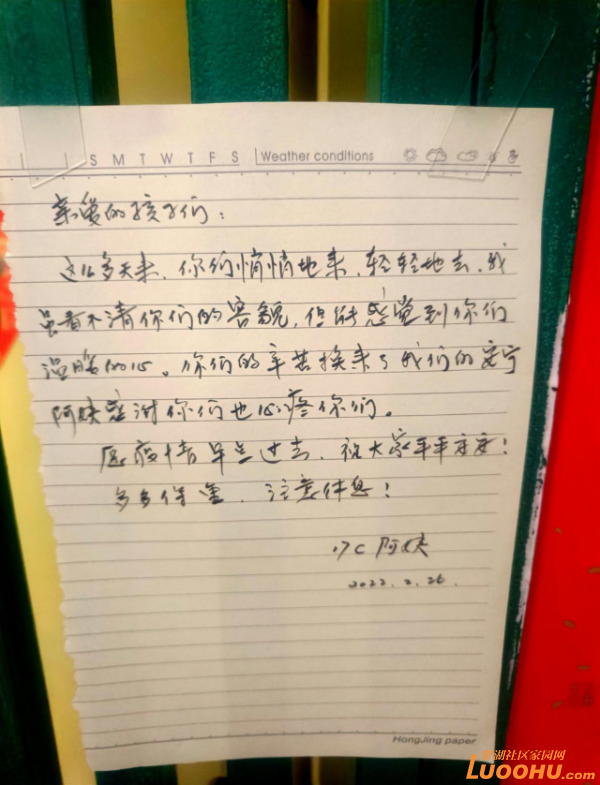 S M T W T F S Weather conditions
亲爱的孩子们：
这么多天来，你们悄悄地来，轻轻地去，我
虽看不清你们的容貌，但能感觉到你们
温暖的心。你们的辛苦换来了我们的安宁
阿姨感谢你们也心疼你们。
愿疫情早点过去，祝大家平平安安！
多多保重，注意休息！
17C 阿姨
2022.2.26.
HongJing paper
湖社区家园网
LUOOHU.com